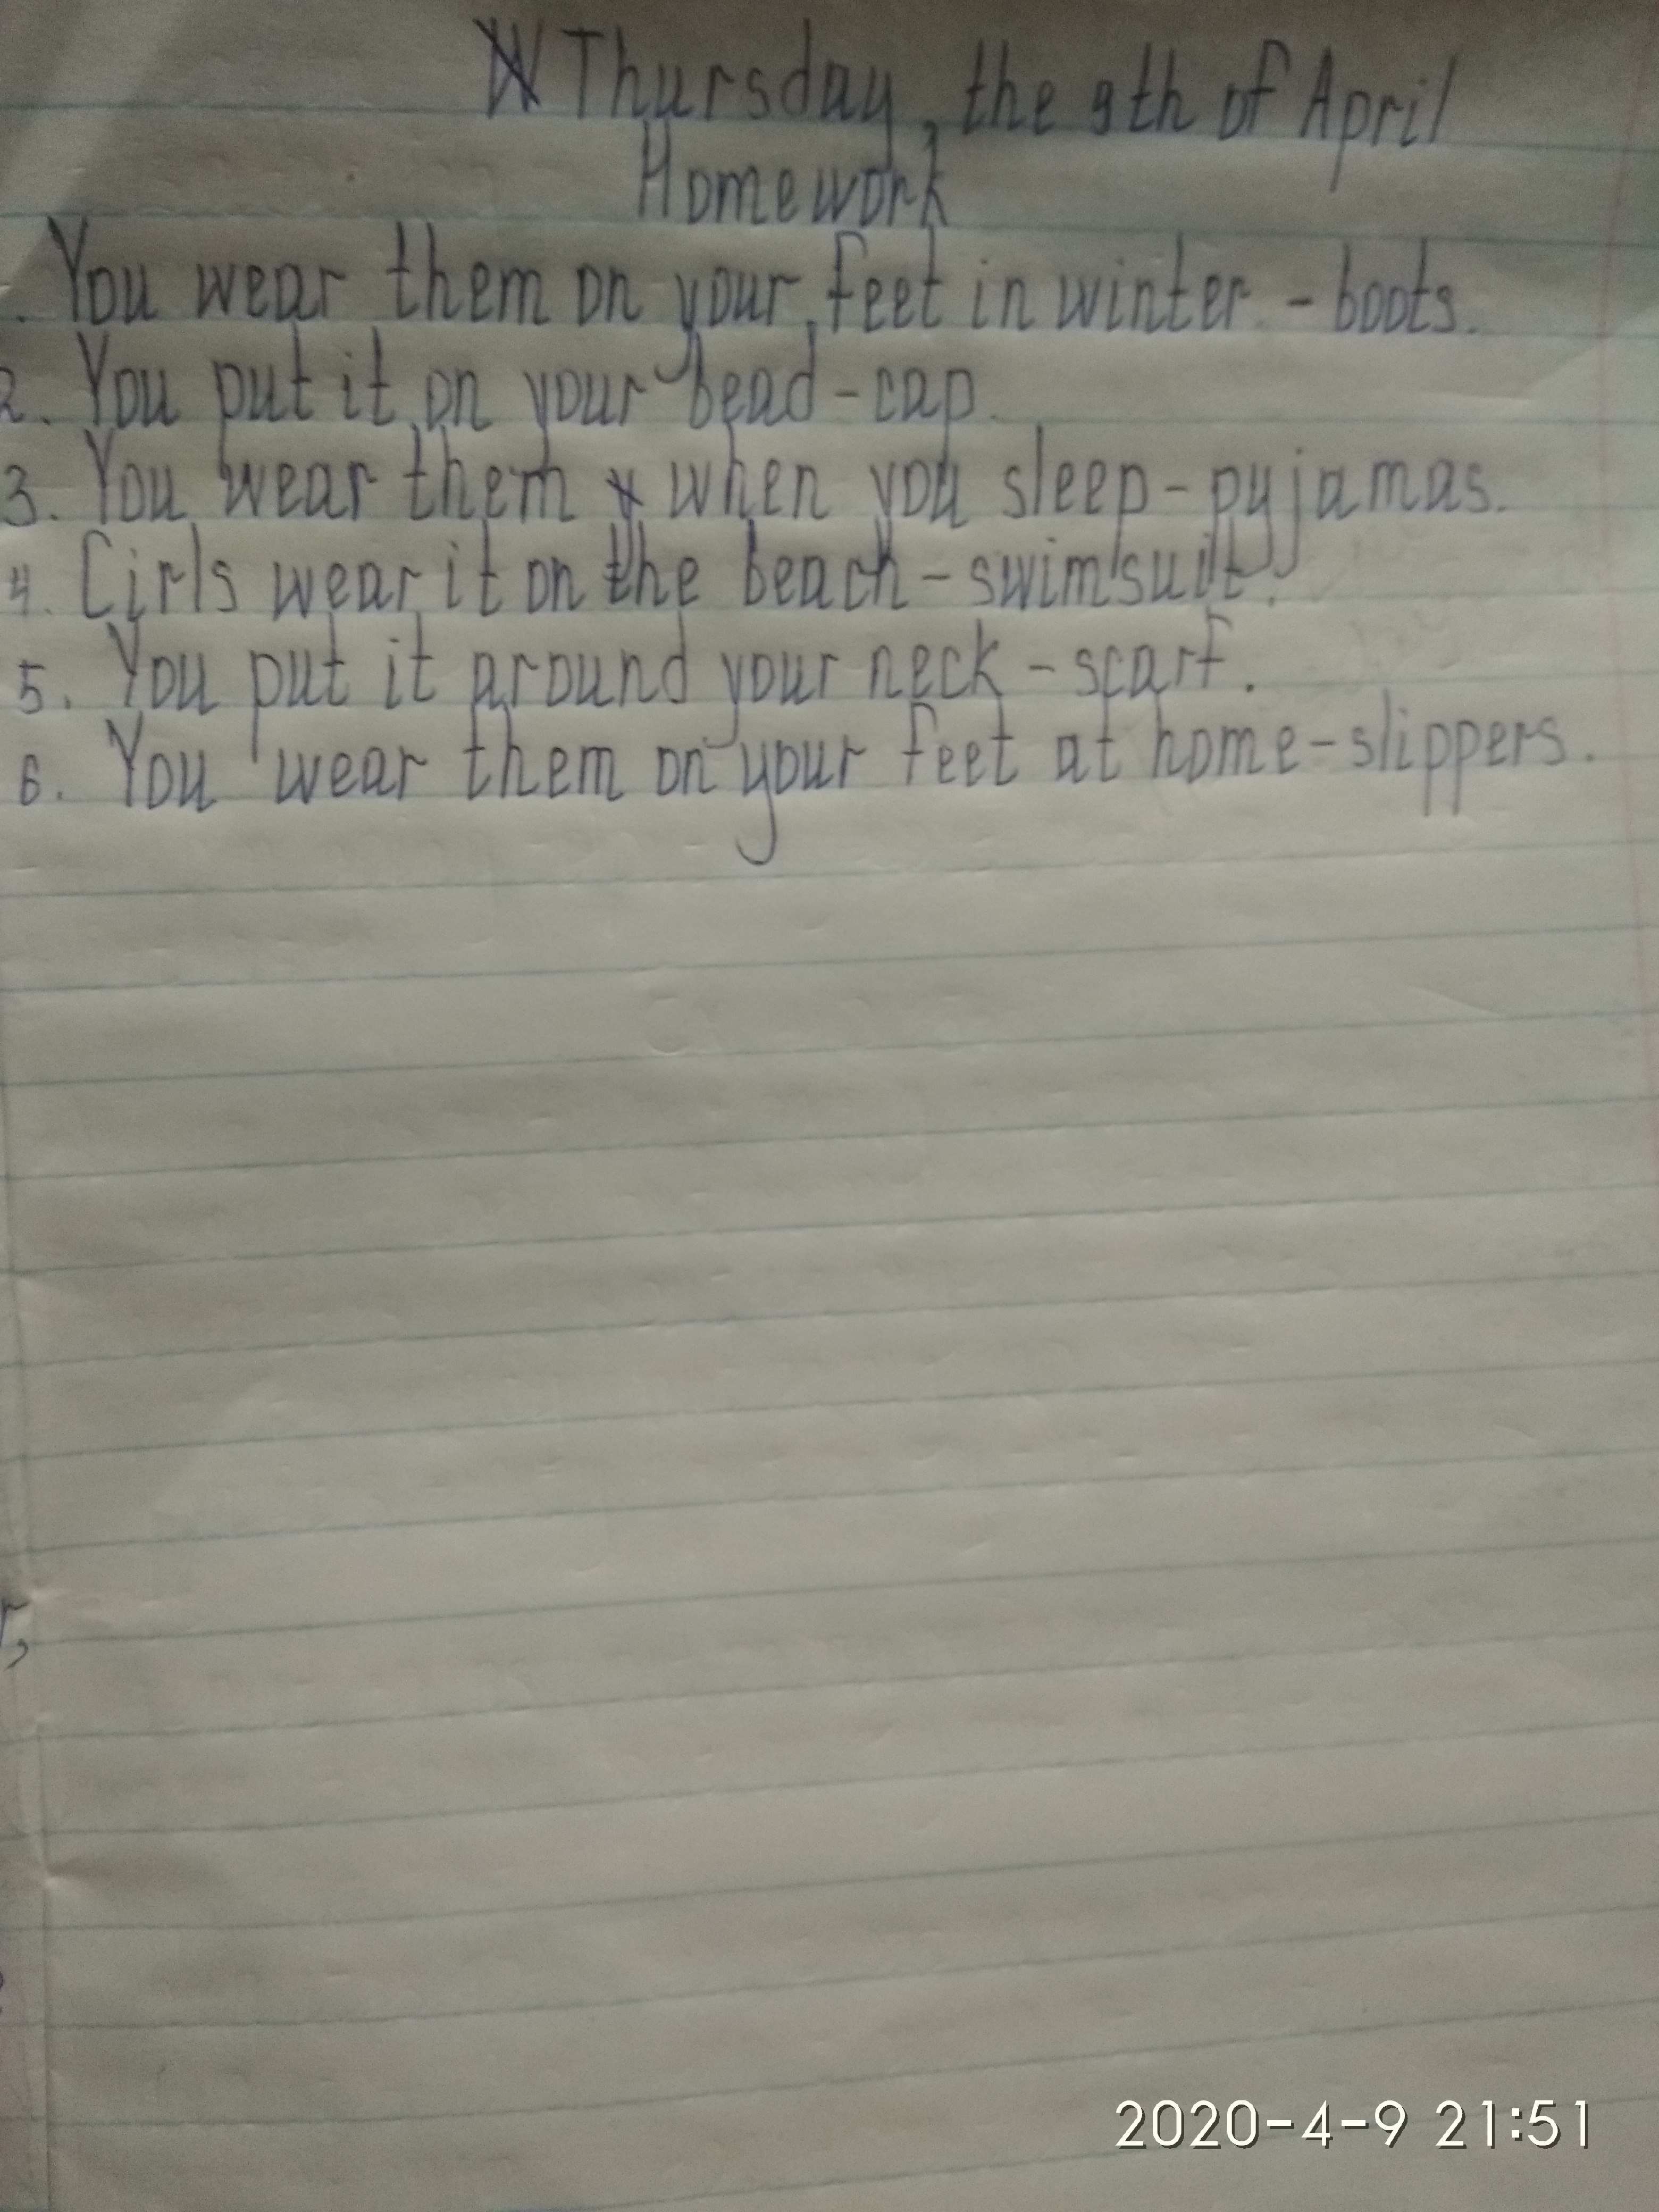 Thursday, the 9th of April
Homework
. You wear them on your feet in winter - boots.
2. You put it on your head - cap.
3. You wear them when you sleep - pyjamas.
4. Girls wear it on the beach - swimsuit.
5. You put it around your neck - scarf.
6. You wear them on your feet at home - slippers.
2020-4-9 21:51